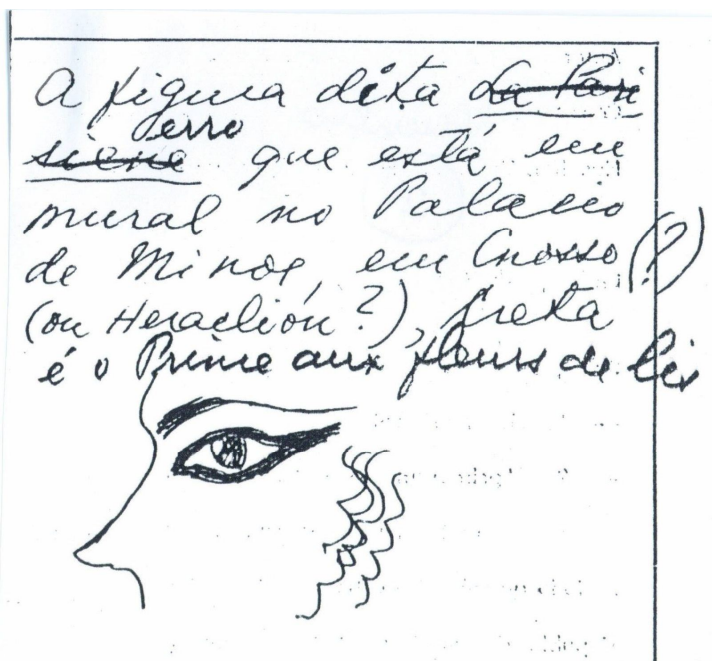 A figura dita La Pari
erro
siene que está em
mural no Palacio
de Minos, em Cnosso (?)
(ou Heraclión?), Creta
é o Prince aux fleurs de lis